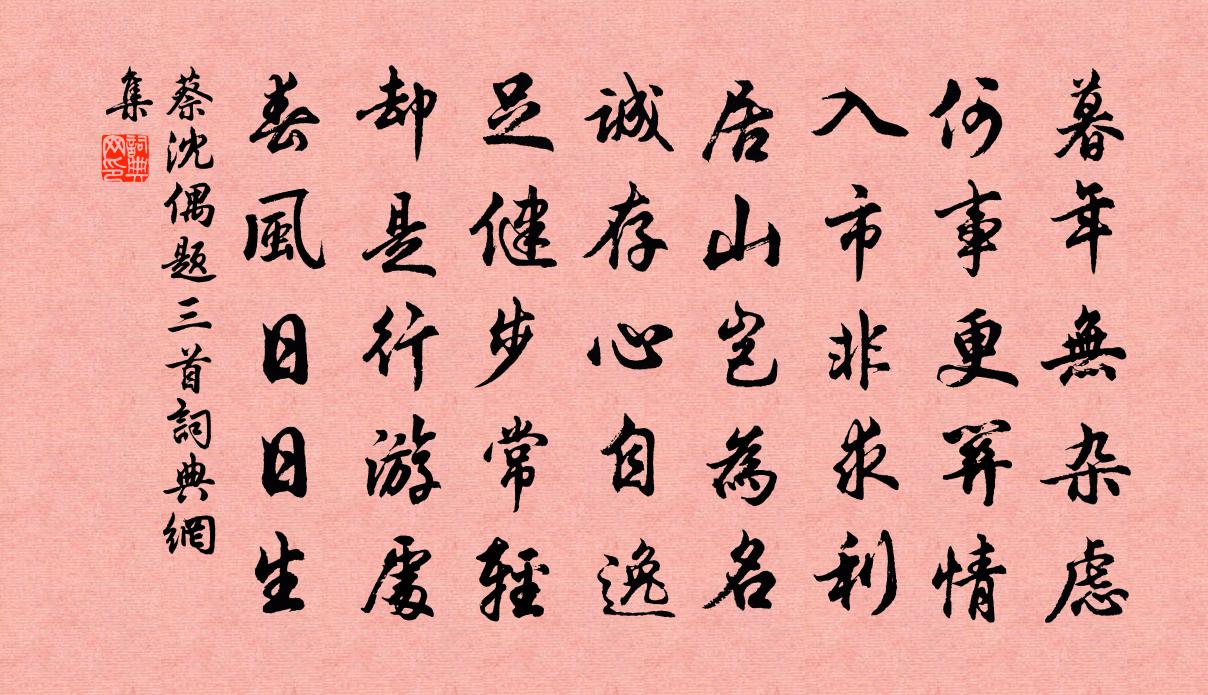 暮年無杂慮
何事更關情
入市非求利
居山岂為名
誠存心自逸
足健步常輕
却是行游處
春風日日生
蔡沈偶题三首詞典網
集
詞典
网印